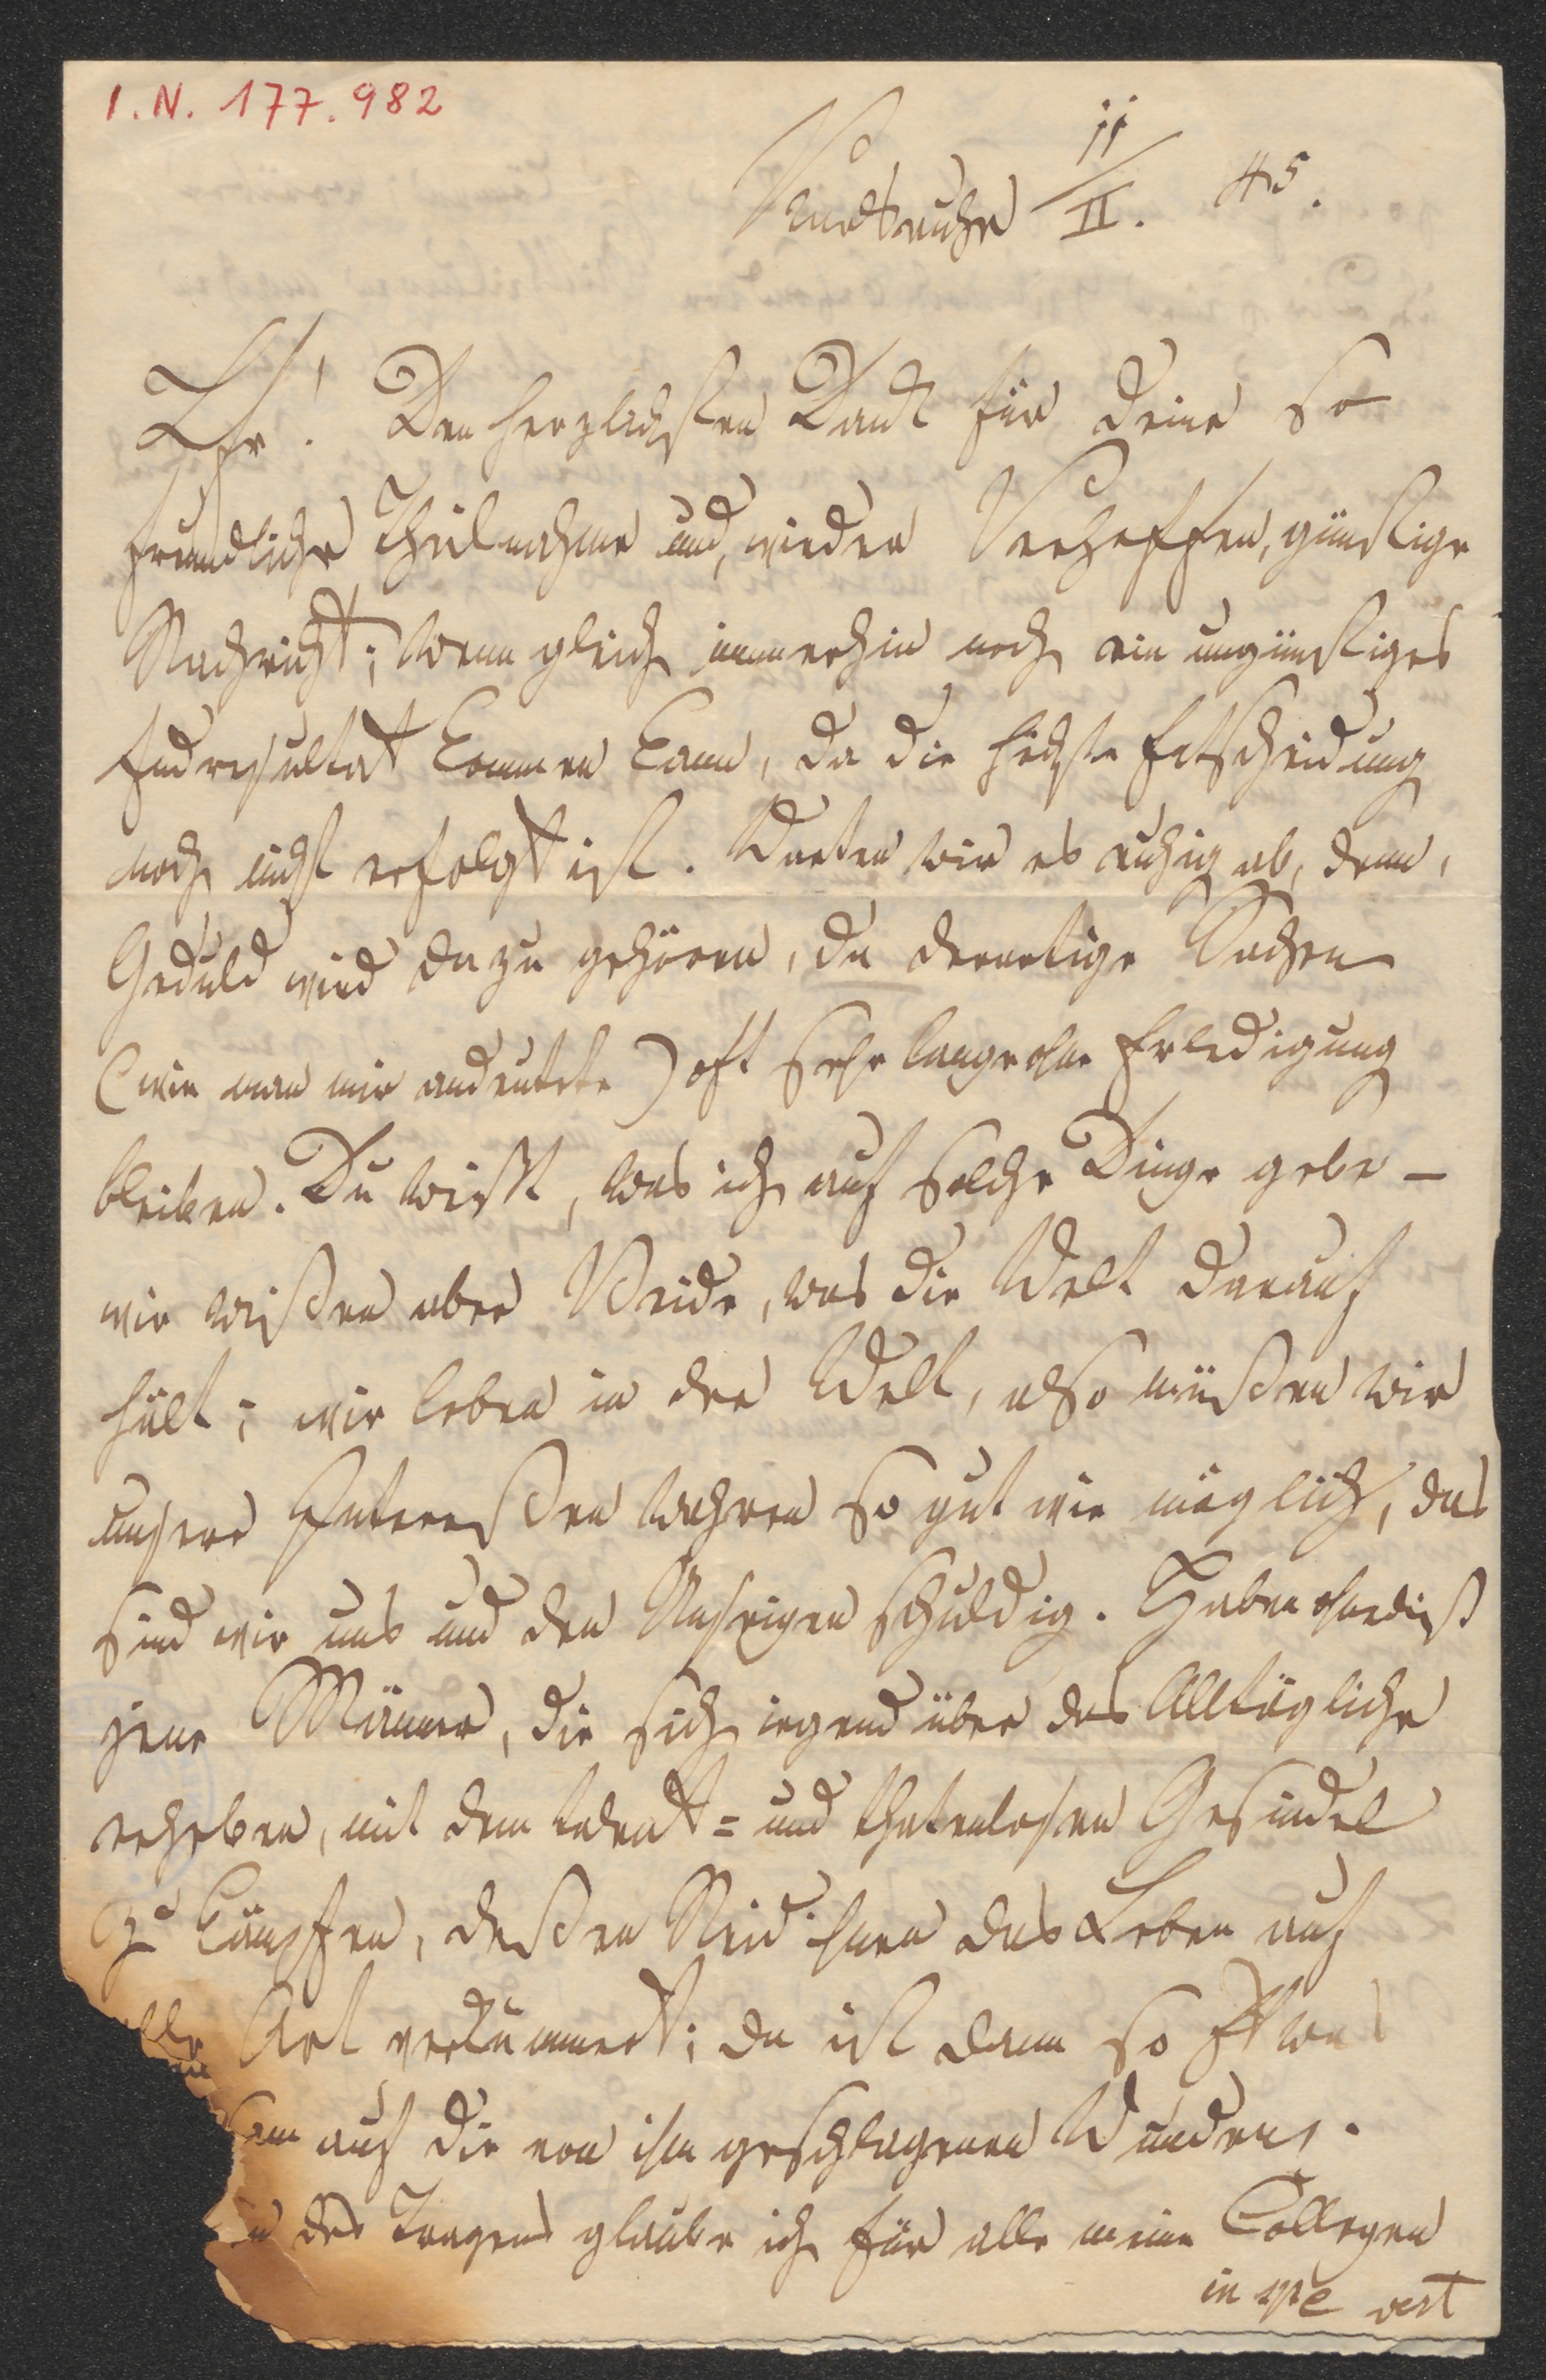 I.N. 177.982
11/II. 45.
Lfr! Den herzlichsten Dank für Deine so
freundliche Theilnahme und, wieder Verhoffen, günstige
Nachricht; wenn gleich immerhin noch ein ungünstiges
Endresultat kommen kann, da die höchste Entscheidung
noch nicht erfolgt ist. Warten wir es ruhig ab, denn,
Geduld wird dazu gehören, da derartige Sachen
(wie man mir andeutete) oft sehr lange ohne Erledigung
bleiben. Du weißt, was ich auf solche Dinge gebe –
wir wißen aber Beide, was die Welt darauf
hält; wir leben in der Welt, also müßen wir
unsere Intereßen wahren so gut wie möglich, das
sind wir uns und den Unsrigen schuldig. Haben ohnedieß
jene Männer, die sich irgend über das Alltägliche
erheben, mit dem talent= und thatenlosen Gesindel
zu kämpfen, deßen Neid ihnen das Leben auf
alle Art verkümmert; da ist dann so Etwas
auf die von ihm geschlagenen Wunden.
des Tragens glaube ich für alle meine Collegen
in spe vert